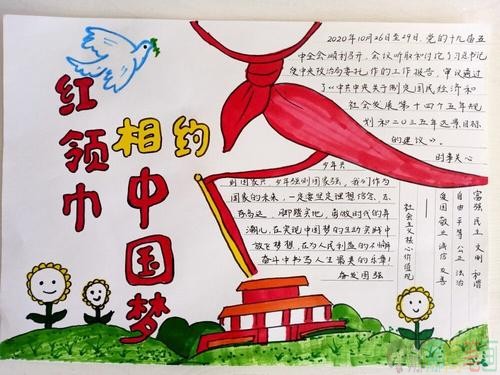 红领巾
相约
中国梦
2020年10月26日至29日,党的十九届五
中全会顺利召开。会议听取和讨论了习近平总书记
受中央政治局委托作的工作报告,审议通过
了《中共中央关于制定国民经济和
社会发展第十四个五年规
划和二〇三五年远景目标
的建议》。
时事关心
少年兴
则国家兴,少年强则国家强,我们作为
国家的未来,一定要坚定理想信念,志
存高远,脚踏实地,勇做时代的弄
潮儿,在实现中国梦的生动实践中
放飞梦想,在为人民利益的不懈
奋斗中书写人生最美的乐章!
奋发图强
富强 民主 文明 和谐
自由 平等 公正 法治
爱国 敬业 诚信 友善
社会主义核心价值观